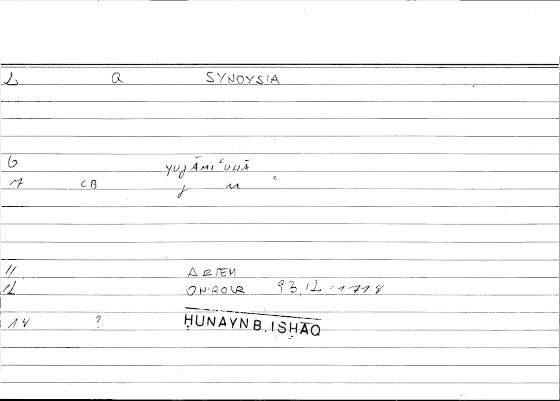 2 Q SYNOYSIA
6 yuǧāmiʿuhā
7 CB ǧ m ʿ
11 ARTEM
12 ONIROCR 93,12
14 ? ḤUNAYN B. ISḤĀQ